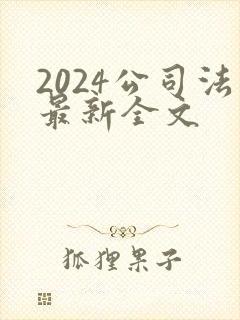 2024公司法
最新全文
狐狸果子